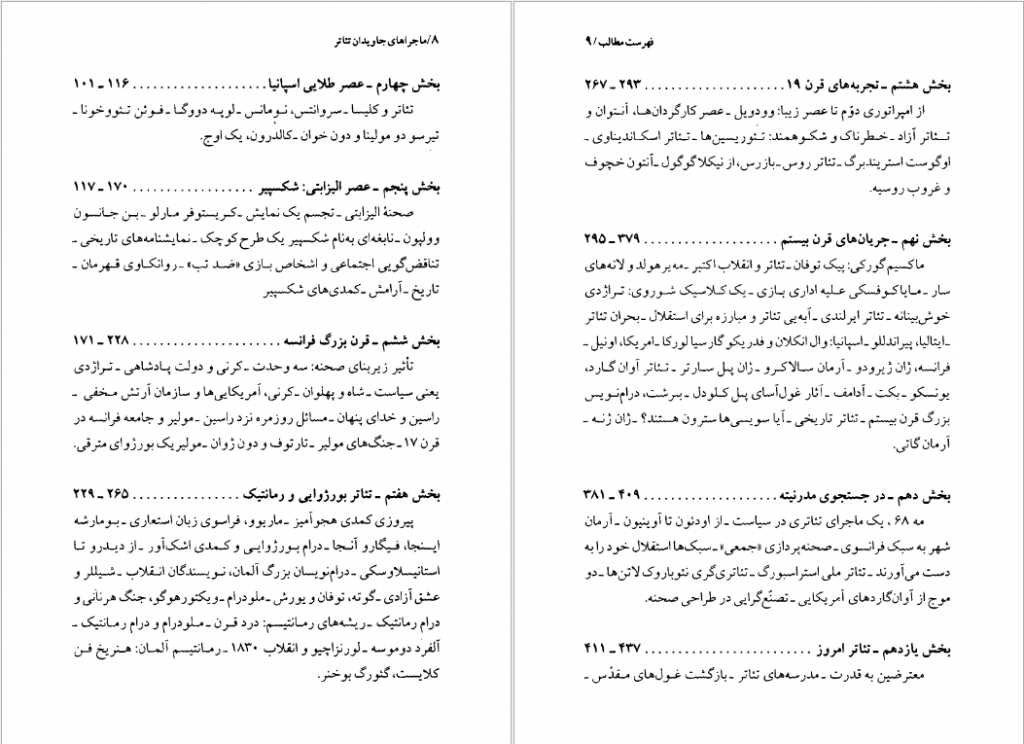 ۸/ماجراهای جاویدان تئاتر
بخش چهارم ـ عصر طلایی اسپانیا .................... ۱۱۶ ـ ۱۰۱
تئاتر و کلیسا ـ سروانتس، نومانس ـ لوپه دووگا ـ فوئن تئووخونا ـ
تیرسو دو مولینا و دون خوان ـ کالدرون، یک اوج.
بخش پنجم ـ عصر الیزابتی: شکسپیر .................. ۱۷۰ ـ ۱۱۷
صحنهٔ الیزابتی ـ تجسم یک نمایش ـ کریستوفر مارلو ـ بن جانسون
وولپون ـ نابغه‌ای به‌نام شکسپیر یک طرح کوچک ـ نمایشنامه‌های تاریخی ـ
تناقض‌گویی اجتماعی و اشخاص بازی «ضد تب» ـ روانکاوی قهرمان ـ
تاریخ ـ آرامش ـ کمدی‌های شکسپیر
بخش ششم ـ قرن بزرگ فرانسه ...................... ۲۲۸ ـ ۱۷۱
تأثیر زیربنای صحنه: سه وحدت ـ کرنی و دولت پادشاهی ـ تراژدی
یعنی سیاست ـ شاه و پهلوان ـ کرنی، آمریکایی‌ها و سازمان آرتش مخفی ـ
راسین و خدای پنهان ـ مسائل روزمره نزد راسین ـ مولیر و جامعه فرانسه در
قرن ۱۷ ـ جنگ‌های مولیر ـ تارتوف و دون ژوان ـ مولیر یک بورژوای مترقی.
بخش هفتم ـ تئاتر بورژوایی و رمانتیک ................ ۲۶۵ ـ ۲۲۹
پیروزی کمدی هجوآمیز ـ ماریوو، فراسوی زبان استعاری ـ بومارشه
اینجا، فیگارو آنجا ـ درام بورژوایی و کمدی اشک‌آور ـ از دیدرو تا
استانیسلاوسکی ـ درام‌نویسان بزرگ آلمان، نویسندگان انقلاب ـ شیللر و
عشق آزادی ـ گوته، توفان و یورش ـ ملودرام ـ ویکتورهوگو، جنگ هرنانی و
درام رمانتیک ـ ریشه‌های رمانتیسم: درد قرن ـ ملودرام و درام رمانتیک ـ
آلفرد دوموسه ـ لورنزاچیو و انقلاب ۱۸۳۰ ـ رمانتیسم آلمان: هنریخ فن
کلایست، گئورگ بوخنر.
فهرست مطالب / ۹
بخش هشتم ـ تجربه‌های قرن ۱۹ ...................... ۲۹۳ ـ ۲۶۷
از امپراتوری دوّم تا عصر زیبا: وودویل ـ عصر کارگردان‌ها، آنتوان و
تئاتر آزاد ـ خطرناک و شکوهمند: تئوریسین‌ها ـ تئاتر اسکاندیناوی ـ
اوگوست استریندبرگ ـ تئاتر روس ـ بازرس، از نیکلاگوگول ـ آنتون خچوف
و غروب روسیه.
بخش نهم ـ جریان‌های قرن بیستم .................... ۳۷۹ ـ ۲۹۵
ماکسیم گورکی: پیک توفان ـ تئاتر و انقلاب اکتبر ـ مه‌یر هولد و لانه‌های
سار ـ مایاکوفسکی علیه اداری بازی ـ یک کلاسیک شوروی: تراژدی
خوش‌بینانه ـ تئاتر ایرلندی ـ آبه‌یی تئاتر و مبارزه برای استقلال ـ بحران تئاتر
ـ ایتالیا، پیراندللو ـ اسپانیا: وال انکلان و فدریکو گارسیا لورکا ـ امریکا، اونیل ـ
فرانسه، ژان ژیرودو ـ آرمان سالاکرو ـ ژان پل سارتر ـ تئاتر آوان گارد،
یونسکو ـ بکت ـ آدامف ـ آثار غول‌آسای پل کلودل ـ برشت، درام‌نویس
بزرگ قرن بیستم ـ تئاتر تاریخی ـ آیا سویسی‌ها سترون هستند؟ ـ ژان ژنه ـ
آرمان گاتی.
بخش دهم ـ در جستجوی مدرنیته .................... ۴۰۹ ـ ۳۸۱
مه ۶۸ ، یک ماجرای تئاتری در سیاست ـ از اودئون تا آوینیون ـ آرمان
شهر به سبک فرانسوی ـ صحنه‌پردازی «جمعی» ـ سبک‌ها استقلال خود را به
دست می‌آورند ـ تئاتر ملی استراسبورگ ـ تئاتری‌گری نئوباروک لاتن‌ها ـ دو
موج از آوان‌گاردهای آمریکایی ـ تصنّع‌گرایی در طراحی صحنه.
بخش یازدهم ـ تئاتر امروز ......................... ۴۳۷ ـ ۴۱۱
معترضین به قدرت ـ مدرسه‌های تئاتر ـ بازگشت غول‌های مقدّس ـ